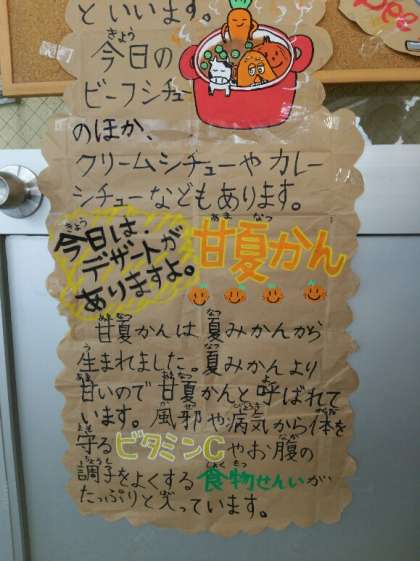 といいます。
今日の
ビーフシチュー
のほか、
クリームシチューやカレー
シチューなどもあります。
今日は
デザートが
ありますよ。
甘夏かん
甘夏かんは夏みかんから
生まれました。夏みかんより
甘いので甘夏かんと呼ばれて
います。風邪や病気から体を
守るビタミンCやお腹の
調子をよくする食物せんいが
たっぷりと入っています。